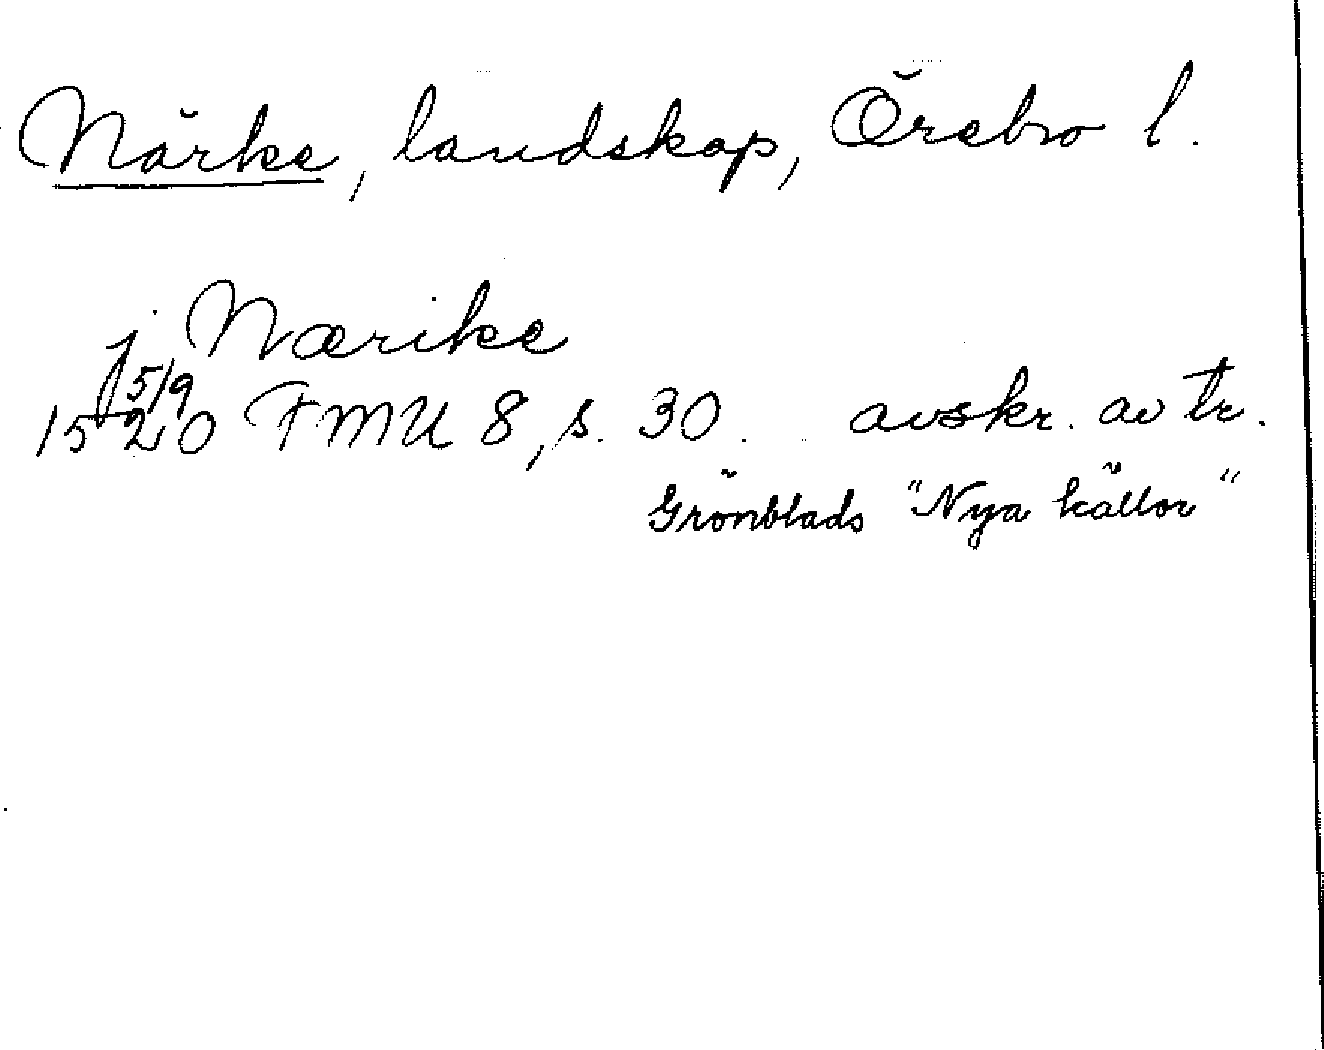 Närke, landskap, Örebro l.
j Nærike
1520 5/9 FMU 8, s. 30. avskr. av tr.
Grönblads "Nya källor"